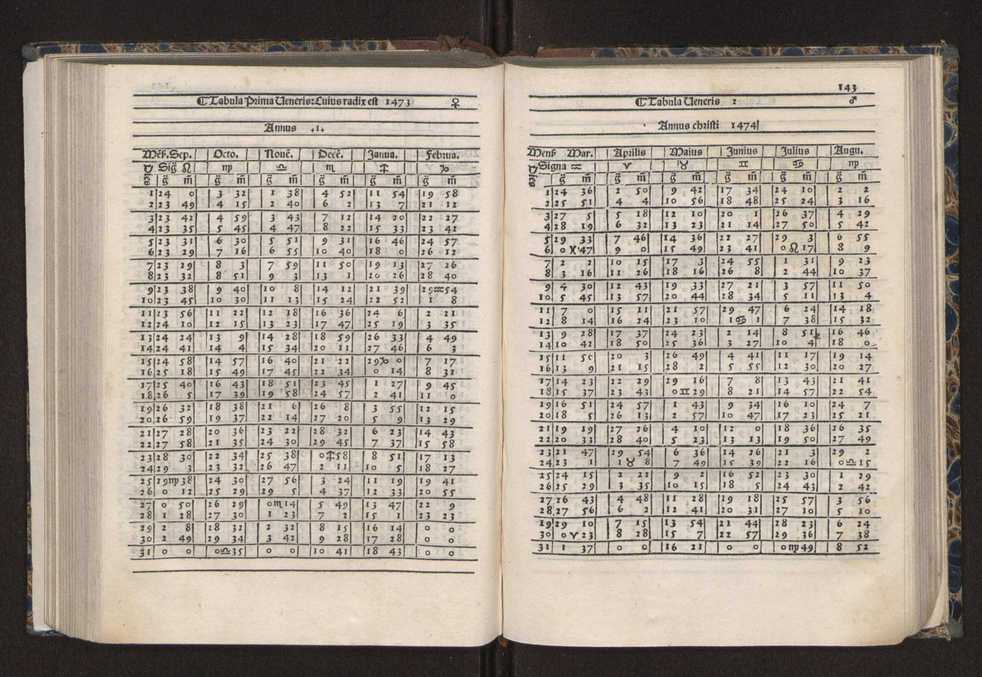 ☾ Tabula Prima Veneris: Cuius radix est 1473 ♀
Annus .1.
Mēs. Sep. Octo. Nouē. Decē. Janua. Februa.
D Sig̃ ♌ ♍ ♎ ♏ ♐ ♑
g̃ m̃ g̃ m̃ g̃ m̃ g̃ m̃ g̃ m̃ g̃ m̃
1 24 0 3 32 1 38 4 52 11 54 19 58
2 23 49 4 15 2 40 6 2 13 7 21 12
3 23 41 4 59 3 43 7 12 14 20 22 27
4 23 35 5 45 4 47 8 22 15 33 23 42
5 23 31 6 30 5 51 9 31 16 46 24 57
6 23 29 7 16 6 55 10 40 18 0 26 12
7 23 29 8 3 7 59 11 50 19 13 27 26
8 23 32 8 51 9 3 13 1 20 26 28 40
9 23 38 9 40 10 8 14 12 21 39 29♒54
10 23 45 10 30 11 13 15 24 22 52 1 8
11 23 56 11 22 12 18 16 36 24 6 2 21
12 24 10 12 15 13 23 17 47 25 19 3 35
13 24 24 13 9 14 28 18 59 26 33 4 49
14 24 41 14 4 15 34 20 11 27 46 6 3
15 24 58 14 57 16 40 21 22 29♑0 7 17
16 25 18 15 49 17 45 22 34 0 14 8 31
17 25 40 16 43 18 51 23 45 1 27 9 45
18 26 5 17 39 19 58 24 57 2 41 11 0
19 26 32 18 38 21 6 26 8 3 55 12 15
20 26 59 19 37 22 14 27 20 5 9 13 29
21 27 28 20 36 23 22 28 32 6 23 14 43
22 27 58 21 35 24 30 29 45 7 37 15 58
23 28 30 22 34 25 38 0♐58 8 51 17 13
24 29 3 23 32 26 47 2 11 10 5 18 27
25 29♍38 24 30 27 56 3 24 11 19 19 41
26 0 12 25 29 29 5 4 37 12 33 20 55
27 0 50 26 29 0♏14 5 49 13 47 22 9
28 1 28 27 30 1 23 7 2 15 1 23 23
29 2 8 18 32 2 32 8 15 16 14 0 0
30 2 49 29 34 3 42 9 28 17 28 0 0
31 0 0 0♎35 0 0 10 41 18 43 0 0
143
☾ Tabula Veneris 2 ♂
Annus christi 1474
Mens Mar. Aprilis Maius Junius Julius Augu.
D Signa ♒ ♈ ♉ ♊ ♋ ♍
g̃ m̃ g̃ m̃ g̃ m̃ g̃ m̃ g̃ m̃ g̃ m̃
1 24 36 2 50 9 42 17 34 24 10 2 2
2 25 51 4 4 10 56 18 48 25 24 3 16
3 27 5 5 18 12 10 20 1 26 37 4 29
4 28 19 6 32 13 23 21 14 27 50 5 42
5 29 33 7 46 14 36 22 27 29 3 6 55
6 0♓47 9 0 15 49 23 41 0♌17 8 9
7 2 2 10 15 17 3 24 55 1 31 9 23
8 3 16 11 26 18 16 26 8 2 44 10 37
9 4 30 12 43 19 33 27 21 3 57 11 50
10 5 45 13 57 20 44 28 34 5 11 13 4
11 7 0 15 11 21 57 29 47 6 24 14 18
12 8 14 16 24 23 10 1♋1 7 38 15 32
13 9 28 17 37 24 23 2 14 8 51 16 46
14 10 42 18 50 25 36 3 27 10 4 18 0
15 11 56 20 3 26 49 4 41 11 17 19 14
16 13 9 21 15 28 2 5 55 12 30 20 27
17 14 23 22 29 29 16 7 8 13 43 21 41
18 15 37 23 43 0♊29 8 21 14 57 22 54
19 16 51 24 57 1 43 9 34 16 10 24 7
20 18 5 26 13 2 57 10 47 17 23 25 21
21 19 19 27 26 4 10 12 0 18 36 26 35
22 20 33 28 40 5 23 13 13 19 50 27 49
23 21 47 29 54 6 36 14 26 21 3 29 2
24 23 1 1♉8 7 49 15 39 22 16 0♎15
25 24 15 2 21 9 2 16 52 23 30 1 29
26 25 29 3 35 10 15 18 5 24 43 2 42
27 26 43 4 48 11 28 19 18 25 57 3 56
28 27 56 6 2 12 41 20 31 27 10 5 10
29 29 10 7 15 13 54 21 44 28 23 6 24
30 0♈23 8 28 15 7 22 57 29 36 7 38
31 1 37 0 0 16 21 0 0 0♍49 8 52